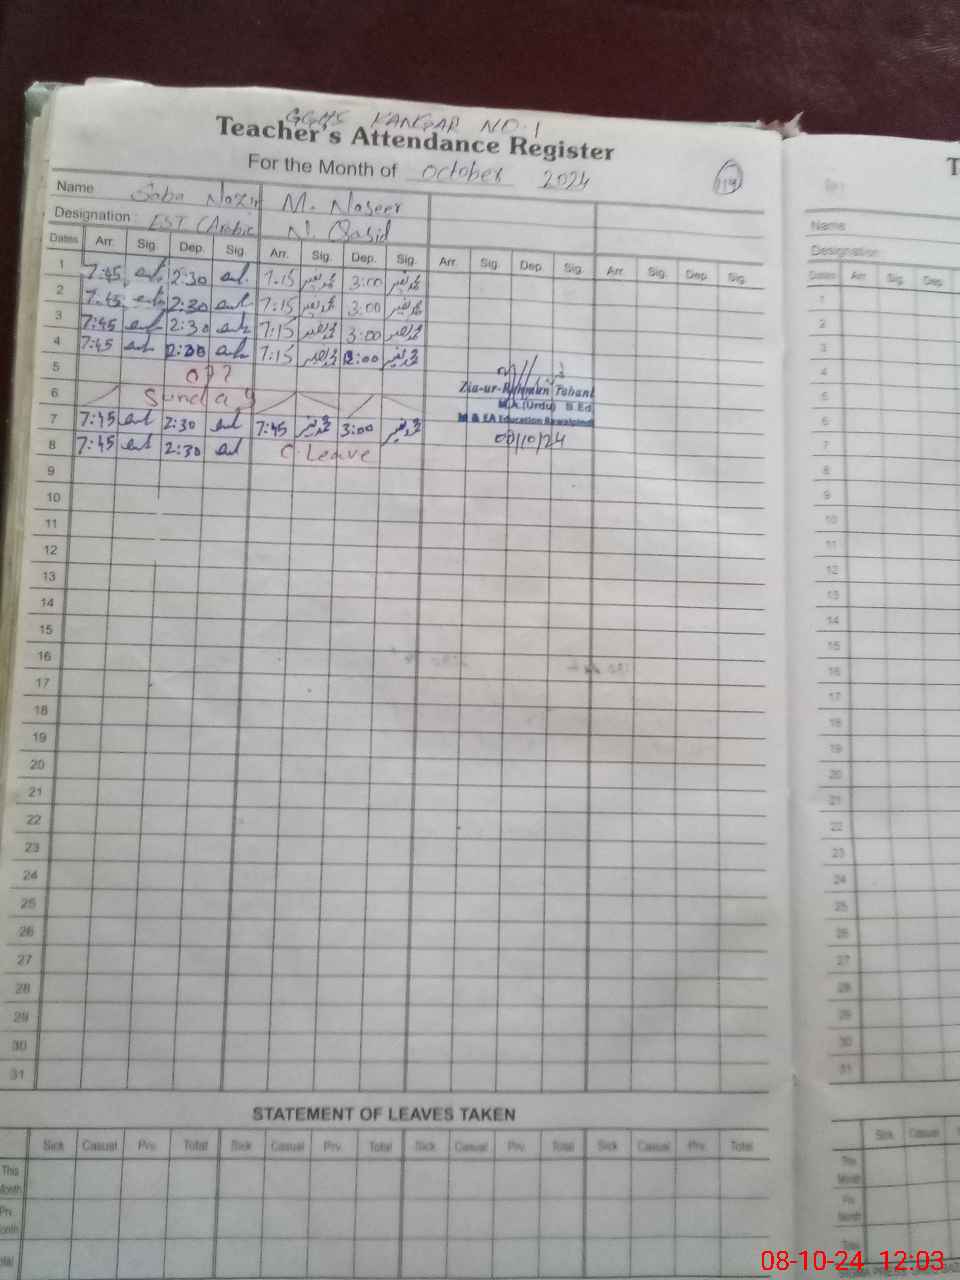 GGHS KANGAR NO.1
Teacher's Attendance Register
For the Month of October 2024
114
Name Saba Nazir M. Naseer
Designation : EST (Arabic N. Qasid
Dates Arr. Sig. Dep. Sig. Arr. Sig. Dep. Sig. Arr. Sig. Dep. Sig. Arr. Sig. Dep. Sig.
1 7:45 2:30 7:15 محمد نصیر 3:00 محمد نصیر
2 7:45 2:30 7:15 محمد نصیر 3:00 محمد نصیر
3 7:45 2:30 7:15 محمد نصیر 3:00 محمد نصیر
4 7:45 2:30 7:15 محمد نصیر 3:00 محمد نصیر
5 OFF
6 Sunday
7 7:45 2:30 7:45 محمد نصیر 3:00 محمد نصیر
8 7:45 2:30 C.Leave
Zia-ur-Rehman Tahani
M.A.(Urdu) B.Ed
M & EA Education Rawalpindi
08/10/24
9
10
11
12
13
14
15
16
17
18
19
20
21
22
23
24
25
26
27
28
29
30
31
STATEMENT OF LEAVES TAKEN
Sick Casual Prv. Total Sick Casual Prv. Total Sick Casual Prv. Total Sick Casual Prv. Total
This Month
Prv. Month
Total
T
Name
Designation
Dates Arr. Sig. Dep.
1
2
3
4
5
6
7
8
9
10
11
12
13
14
15
16
17
18
19
20
21
22
23
24
25
26
27
28
29
30
31
Sick Casual
This Month
Prv. Month
Total
08-10-24 12:03